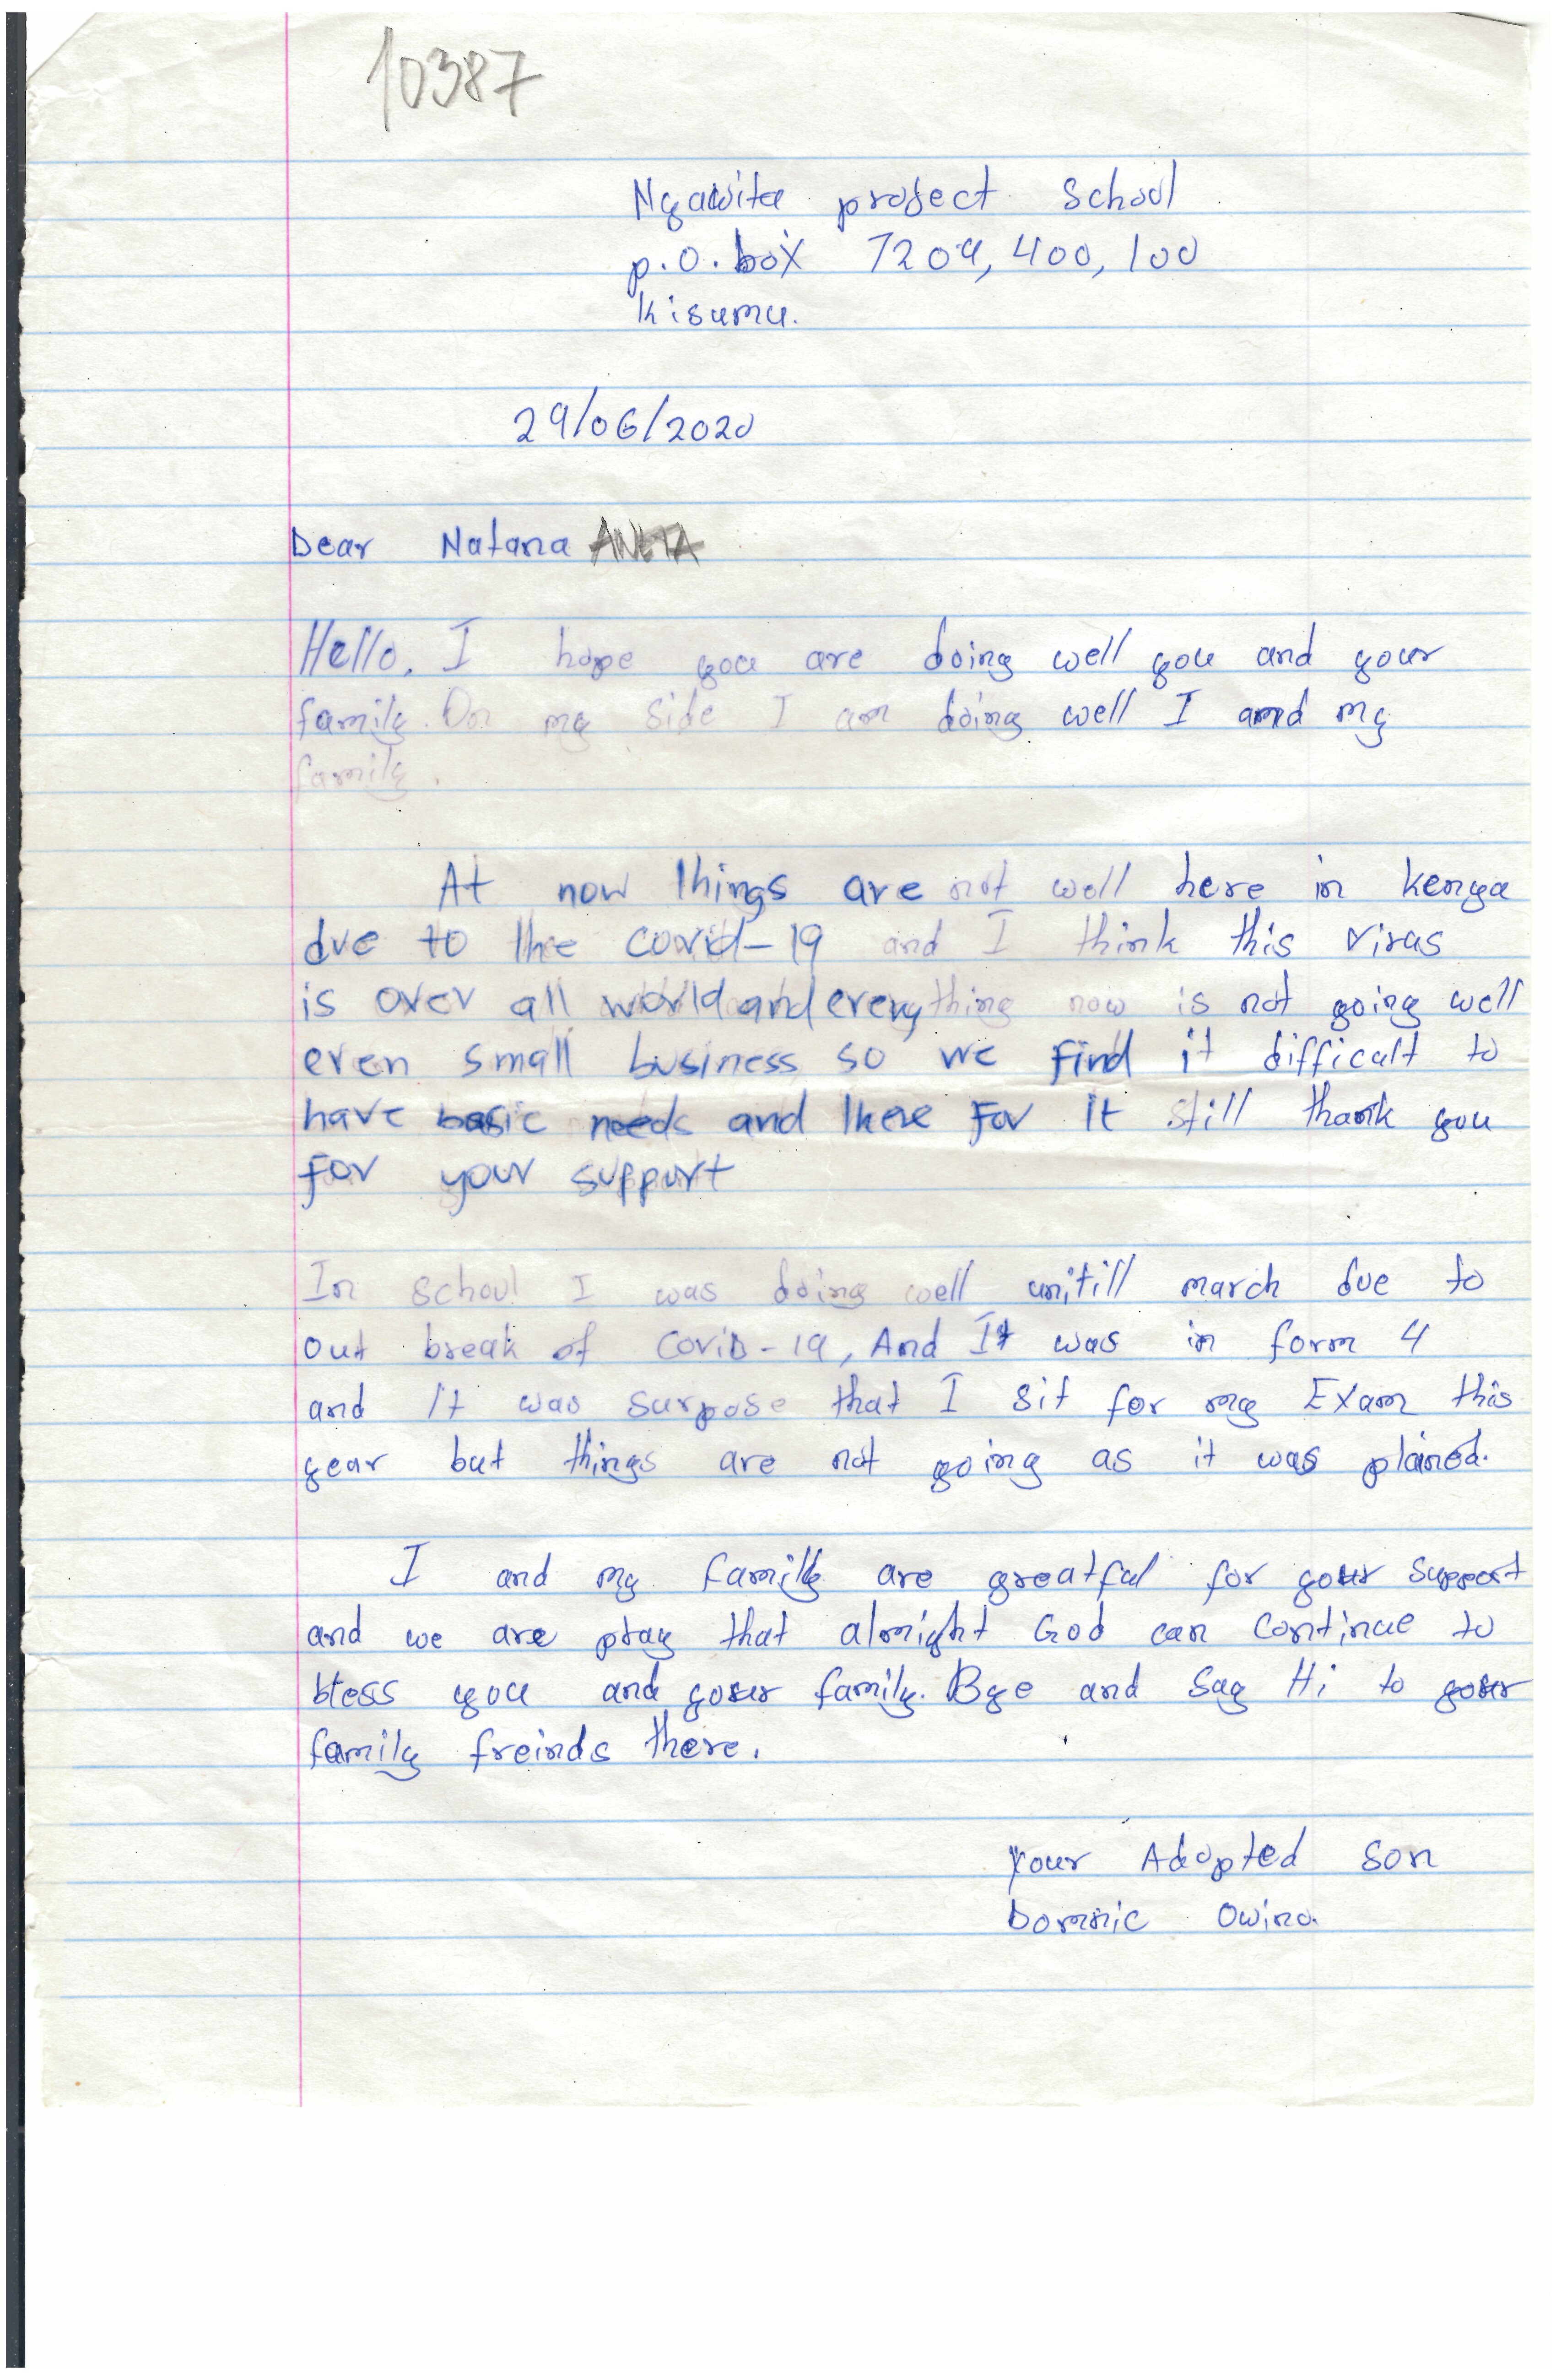 10387
Ngawita project School
p.o.box 7209, 400, 100
Kisumu.
29/06/2020
Dear Natana ANETA
Hello. I hope you are doing well you and your
family. On my side I am doing well I and my
family.
At now things are not well here in kenya
due to the covid-19 and I think this virus
is over all world and everything now is not going well
even small business so we find it difficult to
have basic needs and there for it still thank you
for your support
In school I was doing well unitill march due to
out break of Covid-19, And It was in form 4
and it was surpose that I sit for my Exam this
year but things are not going as it was planed.
I and my family are greatful for your support
and we are pray that almight God can continue to
bless you and your family. Bye and say Hi to your
family freinds there.
Your Adopted son
Domnic Owino.